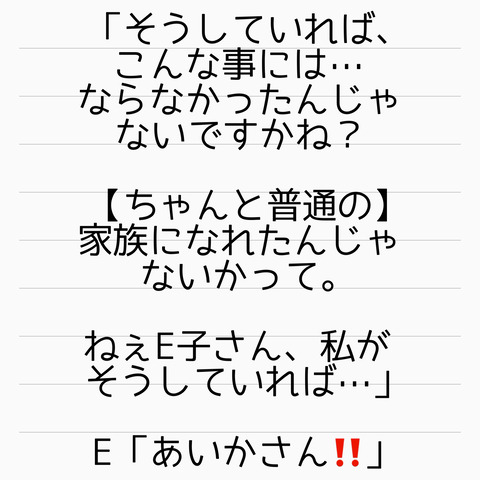 「そうしていれば、
こんな事には…
ならなかったんじゃ
ないですかね？
【ちゃんと普通の】
家族になれたんじゃ
ないかって。
ねぇE子さん、私が
そうしていれば…」
E「あいかさん‼️」